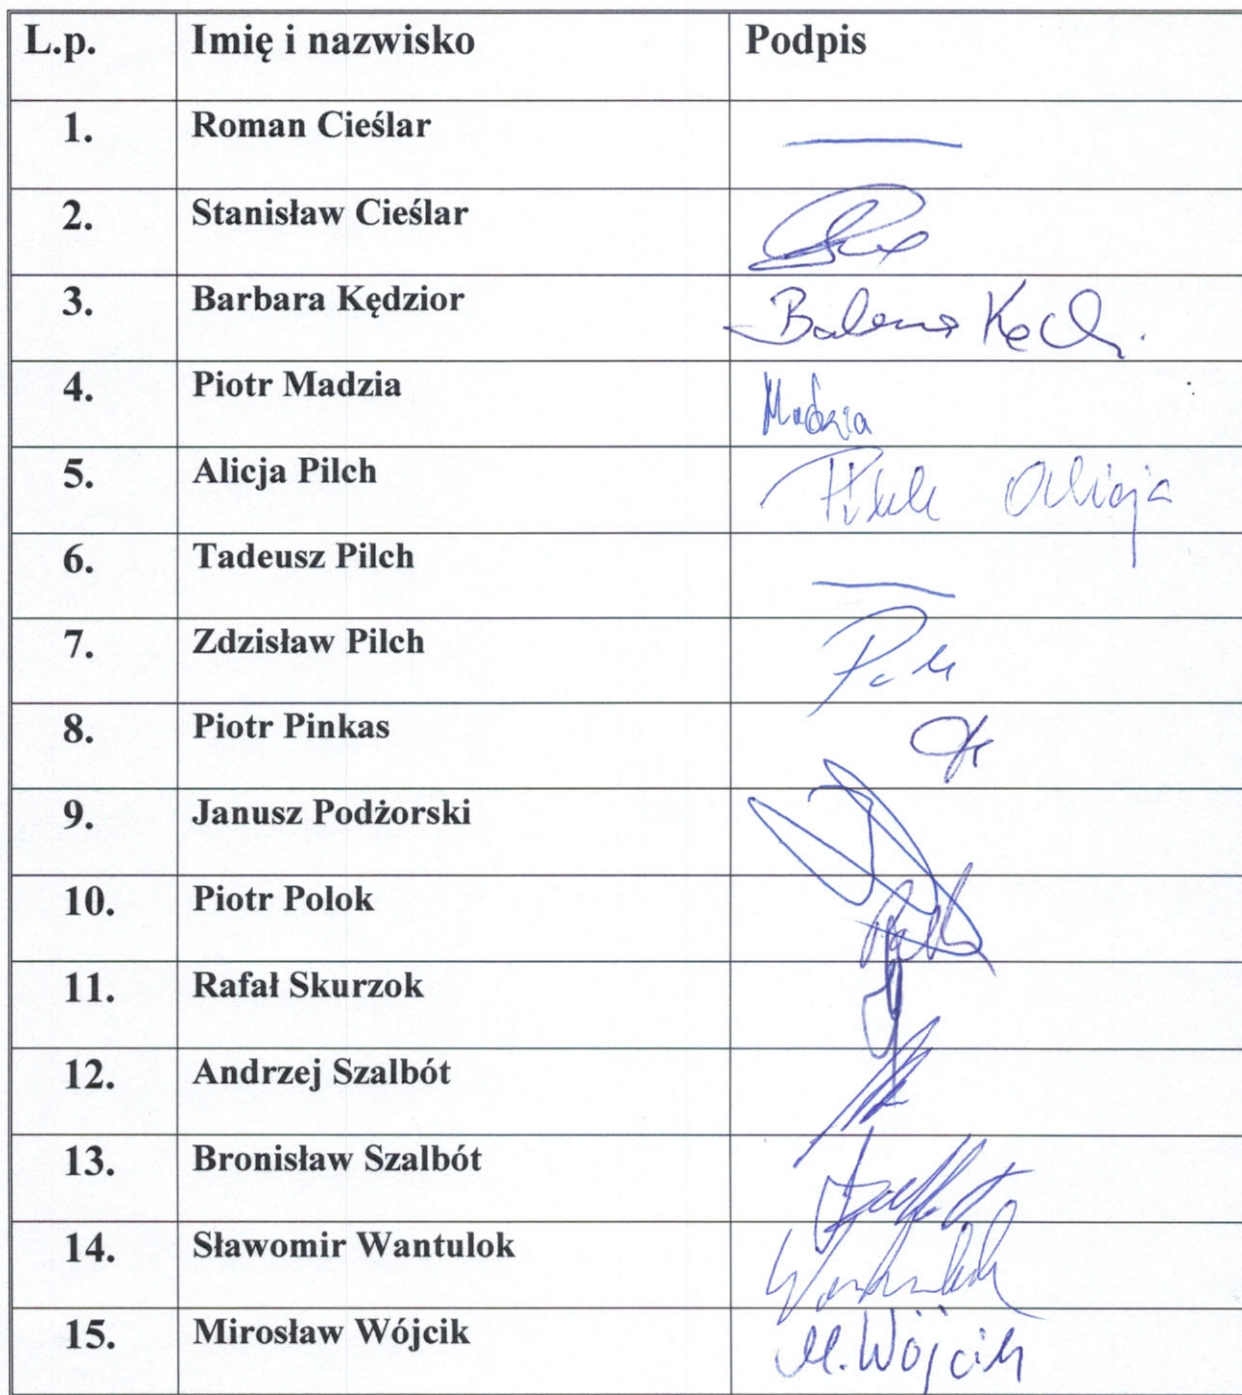 L.p. Imię i nazwisko Podpis
1. Roman Cieślar
2. Stanisław Cieślar
3. Barbara Kędzior
4. Piotr Madzia Madzia
5. Alicja Pilch Pilch Alicja
6. Tadeusz Pilch
7. Zdzisław Pilch
8. Piotr Pinkas
9. Janusz Podżorski
10. Piotr Polok
11. Rafał Skurzok
12. Andrzej Szalbót
13. Bronisław Szalbót
14. Sławomir Wantulok
15. Mirosław Wójcik M. Wójcik